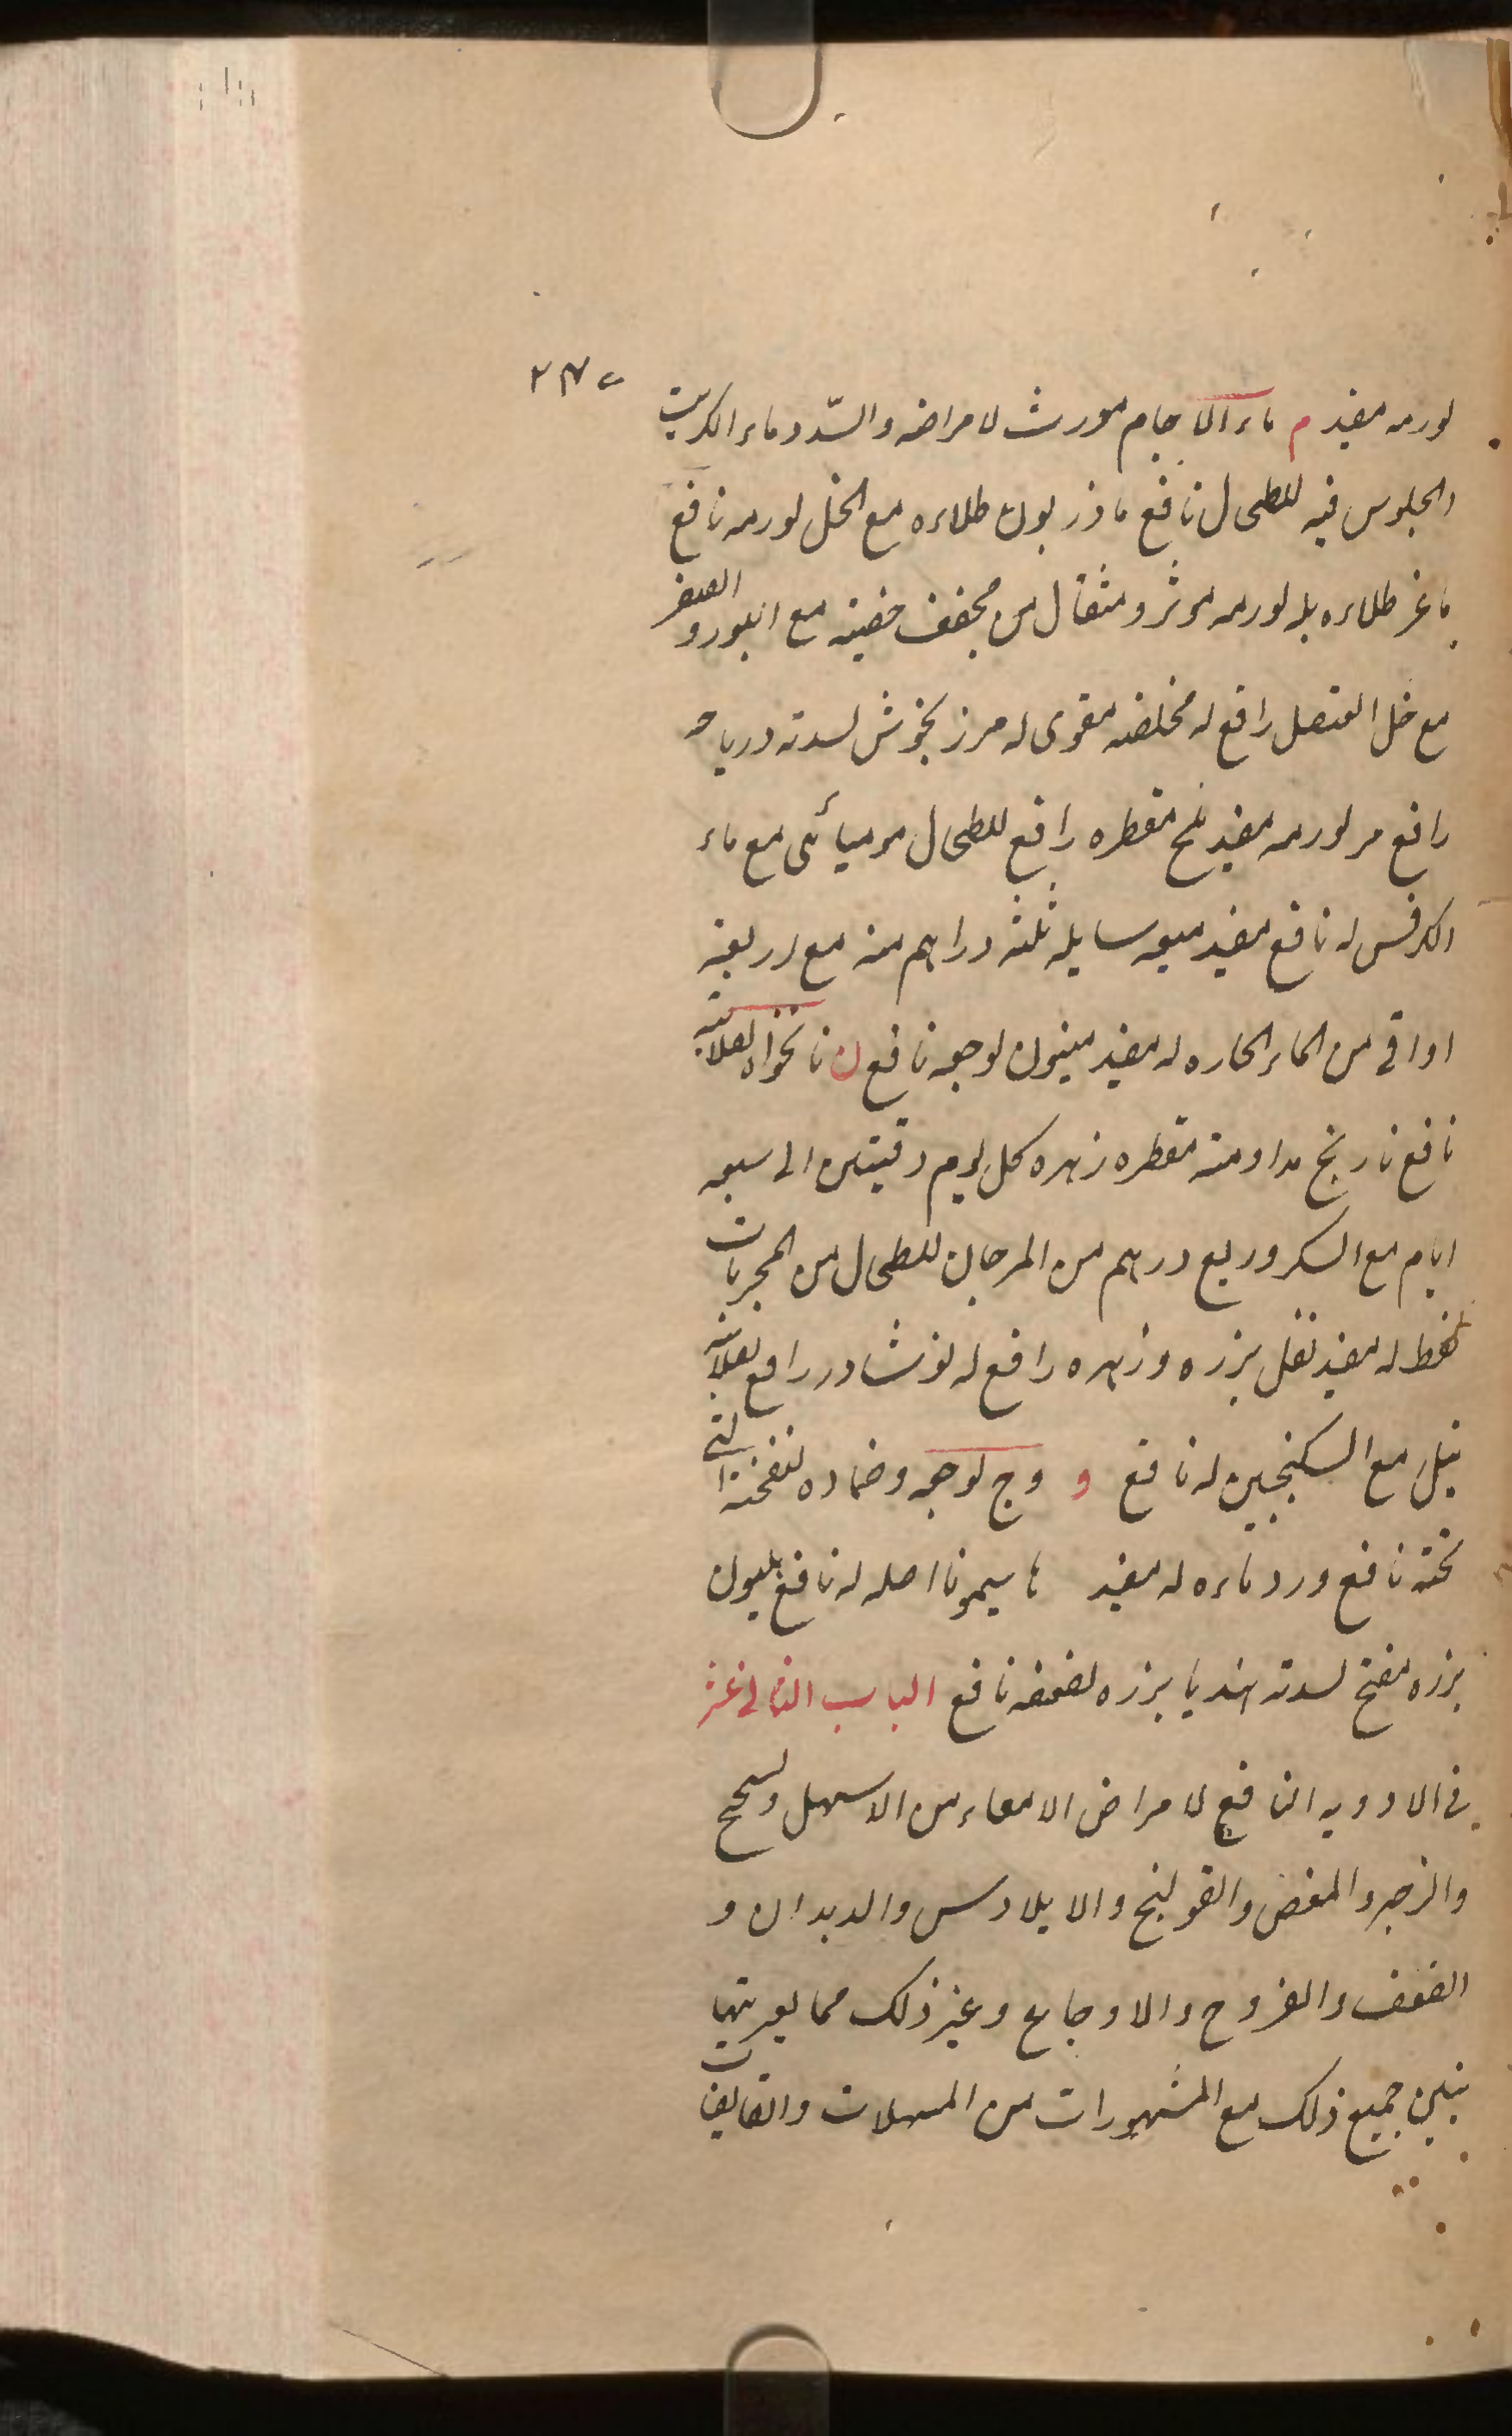 لورمه مفيد م ماء الاجام مورث لامراضه والسّدد ماء الكبريت
والجلوس فيه للطحال نافع ماذريون طلاءه مع الخل لورمه نافع
ماعز طلاءه بله لورمه موثر ومثقال من مجفف خصيته مع البورد والصعتر
مع خل العنصل رافع له مخلصه مقوى له مرزنجوش لسدته ورياحه
رافع مر لورمه مفيد ملح مقطره رافع للطحال موميائى مع ماء
الكرفس له نافع مفيد ميعه سايله ثلثه دراهم منه مع اربعة
اواقى من الماء الحاره له مفيد مينون لوجعه نافع ن نانخواه لصلابته
نافع نارنج مداومته مقطره زهره كل يوم وقيتين الى سبعه
ايام مع السكر وربع درهم من المرجان للطحال من المجربات
نفط له مفيد نفل بزره وزهره رافع له نوشادر رافع لصلابته
نيل مع السكنجبين له نافع و وج لوجعه وضماده لنفخته التى
تحته نافع ورد ماءه له مفيد ه اصله له نافع هليون
بزره مفتح لسدته هنديا بزره لضعفه نافع الباب الثانى عشر
فى الادويه النافع لامراض الامعاء من الاسهل والسحج
والزحير والمغص والقولنج والايلاوس والديدان و
الضعف والقروح والاوجاع وغير ذلك مما يعريتها
نبين جميع ذلك مع المشهورات من المسهلات والقابضات